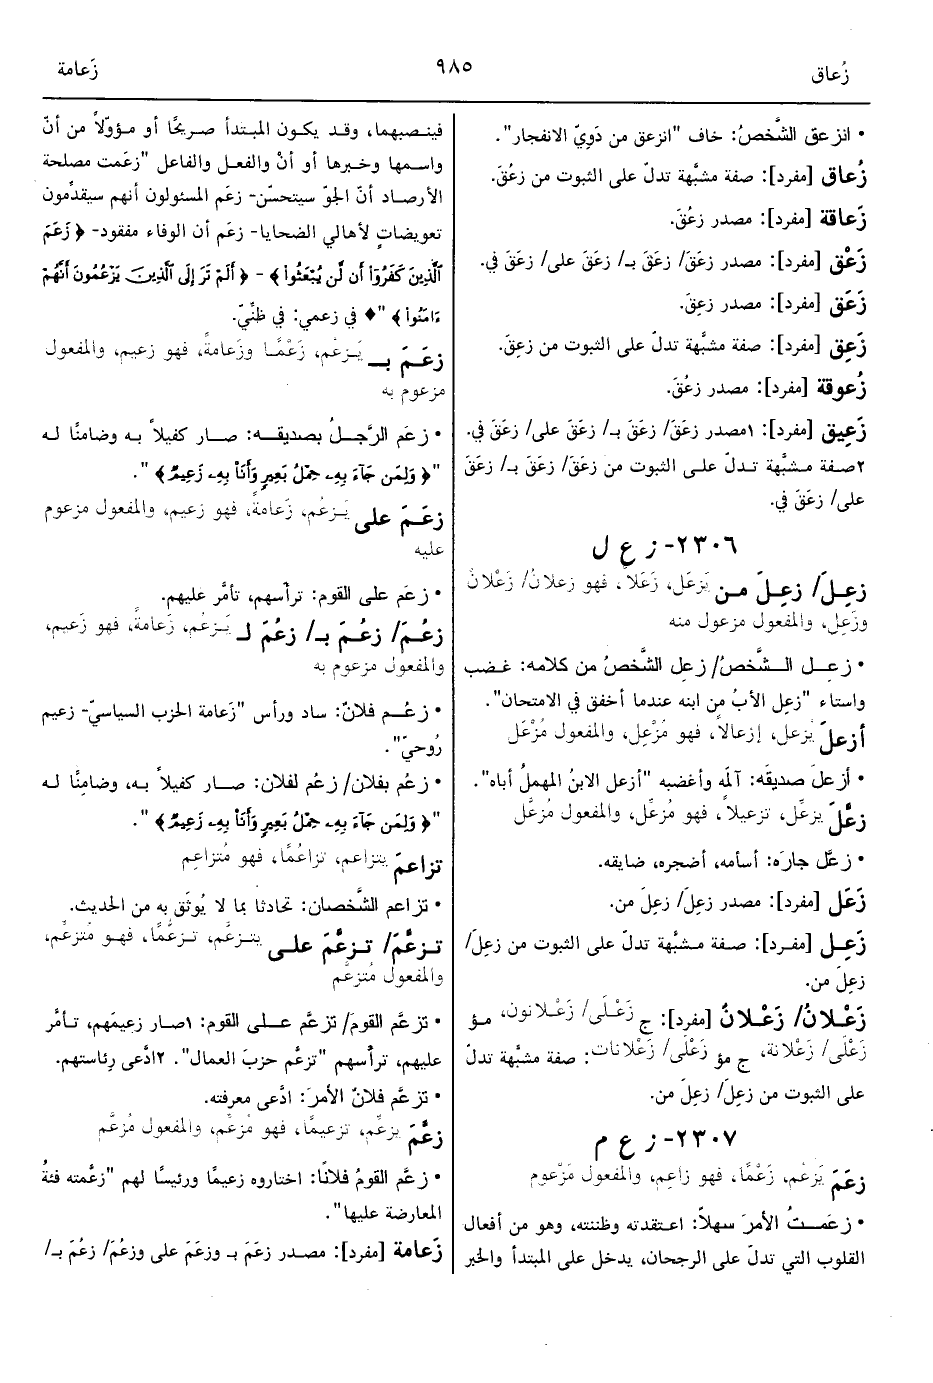 زُعاق
٩٨٥
زَعامة
• انزعق الشَّخصُ: خاف "انزعق من دَوِيّ الانفجار".
زُعاق [مفرد]: صفة مشبَّهة تدلّ على الثبوت من زعُقَ.
زَعاقة [مفرد]: مصدر زعُقَ.
زَعْق [مفرد]: مصدر زعَقَ/ زعَقَ بـ/ زعَقَ على/ زعَقَ في.
زَعَق [مفرد]: مصدر زعِقَ.
زَعِق [مفرد]: صفة مشبَّهة تدلّ على الثبوت من زعِقَ.
زُعوقة [مفرد]: مصدر زعُقَ.
زَعِيق [مفرد]: ١مصدر زعَقَ/ زعَقَ بـ/ زعَقَ على/ زعَقَ في.
٢صفة مشبَّهة تدلّ على الثبوت من زعَقَ/ زعَقَ بـ/ زعَقَ
على/ زعَقَ في.
٢٣٠٦- ز ع ل
زعِلَ/ زعِلَ من يَزعَل، زَعَلاً، فهو زعلانُ/ زَعْلانٌ
وزَعِل، والمفعول مزعول منه
• زعِل الشَّخصُ/ زعِل الشَّخصُ من كلامه: غضب
واستاء "زعِل الأبُ من ابنه عندما أخفق في الامتحان".
أزعلَ يُزعل، إزعالاً، فهو مُزْعِل، والمفعول مُزْعَل
• أزعلَ صديقَه: آلمَه وأغضبه "أزعل الابنُ المهملُ أباه".
زعَّلَ يزعِّل، تزعيلاً، فهو مُزعِّل، والمفعول مُزعَّل
• زعَّل جارَه: أسأمه، أضجره، ضايقه.
زَعَل [مفرد]: مصدر زعِلَ/ زعِلَ من.
زَعِل [مفرد]: صفة مشبَّهة تدلّ على الثبوت من زعِلَ/
زعِلَ من.
زَعْلانُ/ زَعْلانٌ [مفرد]: ج زَعْلَى/ زَعْلانون، مؤ
زَعْلَى/ زَعْلانة، ج مؤ زَعْلَى/ زَعْلانات: صفة مشبَّهة تدلّ
على الثبوت من زعِلَ/ زعِلَ من.
٢٣٠٧- ز ع م
زعَمَ يَزعُم، زَعْمًا، فهو زاعِم، والمفعول مَزْعوم
• زعَمتُ الأمرَ سهلاً: اعتقدته وظننته، وهو من أفعال
القلوب التي تدلّ على الرجحان، يدخل على المبتدأ والخبر
فينصبهما، وقد يكون المبتدأ صريحًا أو مؤوّلاً من أنّ
واسمها وخبرها أو أنْ والفعل والفاعل "زعَمت مصلحة
الأرصاد أنّ الجوّ سيتحسّن- زعَم المسئولون أنهم سيقدِّمون
تعويضاتٍ لأهالي الضحايا- زعَم أن الوفاء مفقود- ﴿ زَعَمَ
ٱلَّذِينَ كَفَرُوٓاْ أَن لَّن يُبۡعَثُواْ ﴾ - ﴿ أَلَمۡ تَرَ إِلَى ٱلَّذِينَ يَزۡعُمُونَ أَنَّهُمۡ
ءَامَنُواْ ﴾ "♦ في زعمي: في ظنِّيّ.
زعَمَ بـ يَزعُم، زَعْمًا وزَعامةً، فهو زعيم، والمفعول
مزعوم به
• زعَم الرَّجلُ بصديقه: صار كفيلاً به وضامنًا له
"﴿ وَلِمَن جَآءَ بِهِۦ حِمۡلُ بَعِيرٖ وَأَنَا۠ بِهِۦ زَعِيمٞ ﴾ ".
زعَمَ على يَزعُم، زَعامةً، فهو زعيم، والمفعول مزعوم
عليه
• زعَم على القوم: ترأسهم، تأمَّر عليهم.
زعُمَ/ زعُمَ بـ/ زعُمَ لـ يَزعُم، زَعامةً، فهو زَعيم،
والمفعول مزعوم به
• زعُم فلانٌ: ساد ورأس "زَعامة الحزب السياسيّ- زعيم
رُوحيّ".
• زعُم بفلان/ زعُم لفلان: صار كفيلاً به، وضامنًا له
"﴿ وَلِمَن جَآءَ بِهِۦ حِمۡلُ بَعِيرٖ وَأَنَا۠ بِهِۦ زَعِيمٞ ﴾ ".
تزاعمَ يتزاعم، تزاعُمًا، فهو مُتزاعِم
• تزاعم الشَّخصان: تحادثا بما لا يُوثَق به من الحديث.
تزعَّمَ/ تزعَّمَ على يتزعَّم، تزعُّمًا، فهو مُتزعِّم،
والمفعول مُتزعَّم
• تزعَّم القومَ/ تزعَّم على القوم: ١صار زعيمَهم، تأمَّر
عليهم، ترأسهم "تزعَّم حزبَ العمال". ٢ادَّعى رِئاستهم.
• تزعَّم فلانٌ الأمرَ: ادَّعى معرفته.
زعَّمَ يزعِّم، تزعيمًا، فهو مُزعِّم، والمفعول مُزعَّم
• زعَّم القومُ فلانًا: اختاروه زعيمًا ورئيسًا لهم "زعَّمته فئةُ
المعارضة عليها".
زَعامة [مفرد]: مصدر زعَمَ بـ وزعَمَ على وزعُمَ/ زعُمَ بـ/